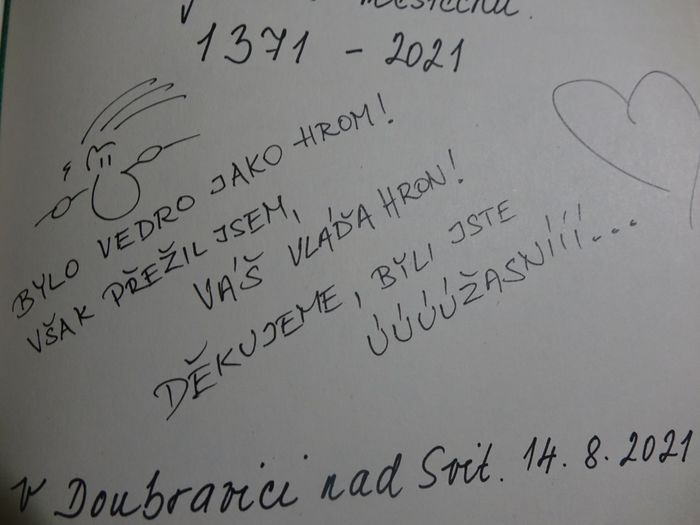 městečku.
1371 - 2021
BYLO VEDRO JAKO HROM!
VŠAK PŘEŽIL JSEM,
VÁŠ VLÁĎA HRON!
DĚKUJEME, BYLI JSTE
ÚÚÚÚŽASNÍÍÍ...
v Doubravici nad Svit. 14. 8. 2021